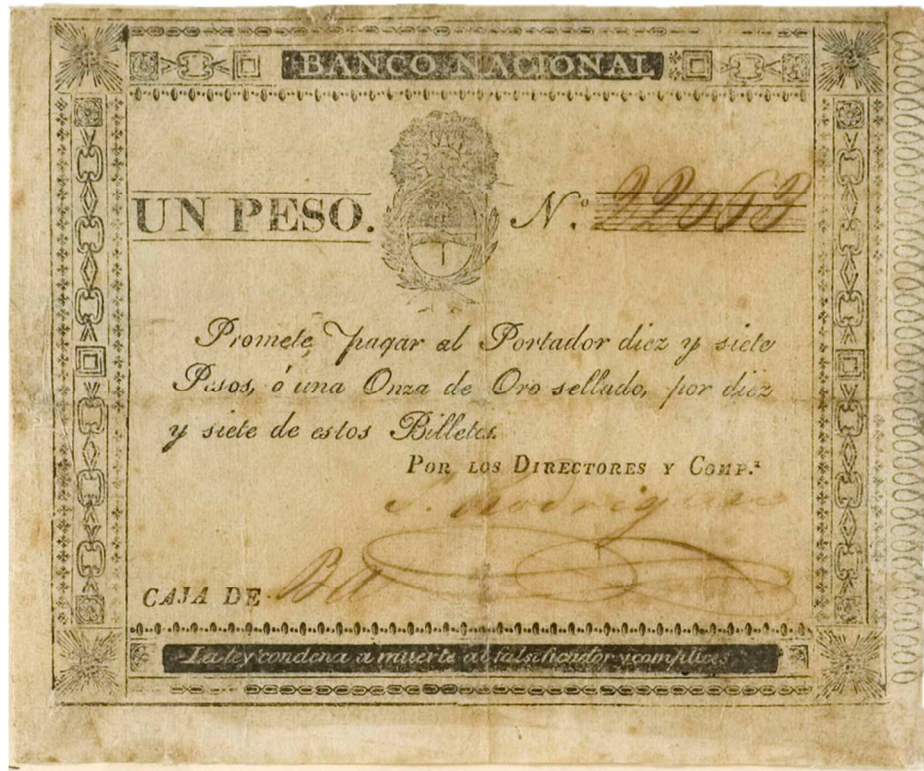 BANCO NACIONAL
UN PESO. N.º 22063
Promete pagar al Portador diez y siete
Pesos, ó una Onza de Oro sellado, por diez
y siete de estos Billetes.
POR LOS DIRECTORES Y COMP.ª
Rodriguez
CAJA DE
La ley condena a muerte al falsificador y complices